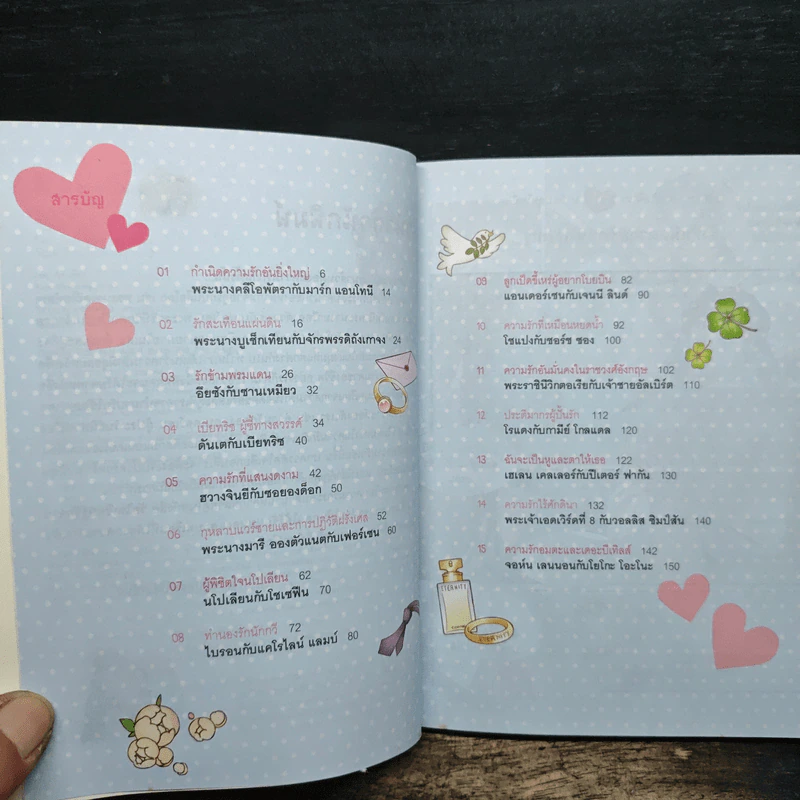 สารบัญ
01 กำเนิดความรักอันยิ่งใหญ่ 6
พระนางคลีโอพัตรากับมาร์ก แอนโทนี 14
02 รักสะเทือนแผ่นดิน 16
พระนางบูเช็กเทียนกับจักรพรรดิถังเกาจง 24
03 รักข้ามพรมแดน 26
อียซังกับซานเหมียว 32
04 เบียทริช ผู้ชี้ทางสวรรค์ 34
ดันเตกับเบียทริช 40
05 ความรักที่แสนงดงาม 42
ฮวางจินยีกับซอยองด็อก 50
06 กุหลาบแวร์ซายและการปฏิวัติฝรั่งเศส 52
พระนางมารี อองตัวแนตกับเฟอร์เซน 60
07 ผู้พิชิตใจนโปเลียน 62
นโปเลียนกับโซเซฟีน 70
08 ทำนองรักนักกวี 72
ไบรอนกับแคโรไลน์ แลมบ์ 80
09 ลูกเป็ดขี้เหร่ผู้อยากโบยบิน 82
แอนเดอร์เซนกับเจนนี ลินด์ 90
10 ความรักที่เหมือนหยดน้ำ 92
โชแปงกับชอร์ช ซอง 100
11 ความรักอันมั่นคงในราชวงศ์อังกฤษ 102
พระราชินีวิกตอเรียกับเจ้าชายอัลเบิร์ต 110
12 ประติมากรผู้ปั้นรัก 112
โรแดงกับกามีย์ โกลแดล 120
13 ฉันจะเป็นหูและตาให้เธอ 122
เฮเลน เคลเลอร์กับปีเตอร์ ฟากัน 130
14 ความรักไร้ศักดินา 132
พระเจ้าเอดเวิร์ดที่ 8 กับวอลลิส ซิมป์สัน 140
15 ความรักอมตะและเดอะบีเทิลส์ 142
จอห์น เลนนอนกับโยโกะ โอะโนะ 150
ETERNITY
ETERNITY